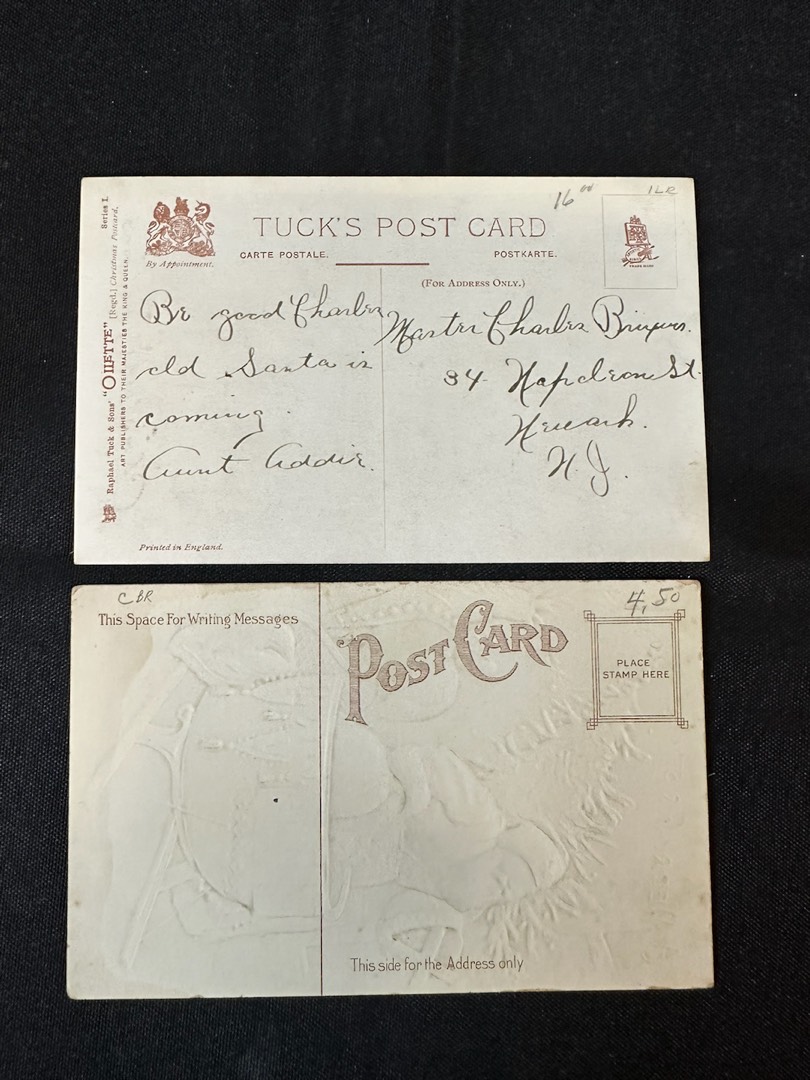 16 00
1LR
TUCK'S POST CARD
CARTE POSTALE.
POSTKARTE.
By Appointment.
(FOR ADDRESS ONLY.)
Raphael Tuck & Sons' "OILETTE" [Regd.] Christmas Postcard. Series I.
ART PUBLISHERS TO THEIR MAJESTIES THE KING & QUEEN.
TRADE MARK
Be good Charles
old Santa is
coming.
Aunt Addie.
Master Charles
34 Napoleon St.
Newark.
N.J.
Printed in England.
CBR
4.50
This Space For Writing Messages
POST CARD
PLACE
STAMP HERE
This side for the Address only